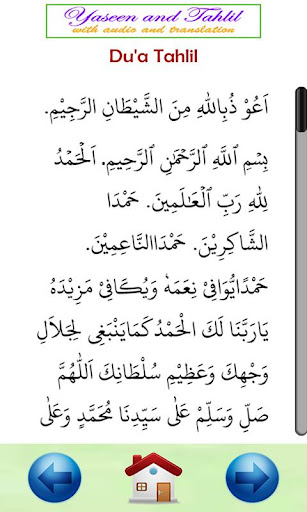 Yaseen and Tahlil
with audio and translation
Du'a Tahlil
اَعُوْ ذُبِاللهِ مِنَ الشَّيْطَانِ الرَّجِيْمِ.
بِسْمِ اللَّهِ ٱلرَّحْمَٰنِ ٱلرَّحِيمِ. اَلْحَمْدُ
لِلَّهِ رَبِّ ٱلْعَـٰلَمِينَ. حَمْدَا
الشَّاكِرِيْنَ. حَمْدَاالنَّاعِمِيْنَ.
حَمْدًايُّوَافِىْ نِعَمَهٗ وَيُكَافِىْ مَزِيْدَهُ
يَارَبَّنَا لَكَ الْحَمْدُ كَمَايَنْبَغِى لِجَلاَلِ
وَجْهِكَ وَعَظِيْمِ سُلْطَانِكَ اَللّٰهُمَّ
صَلِّ وَسَلِّمْ عَلٰى سَيِّدِنَا مُحَمَّدٍ وَعَلٰى